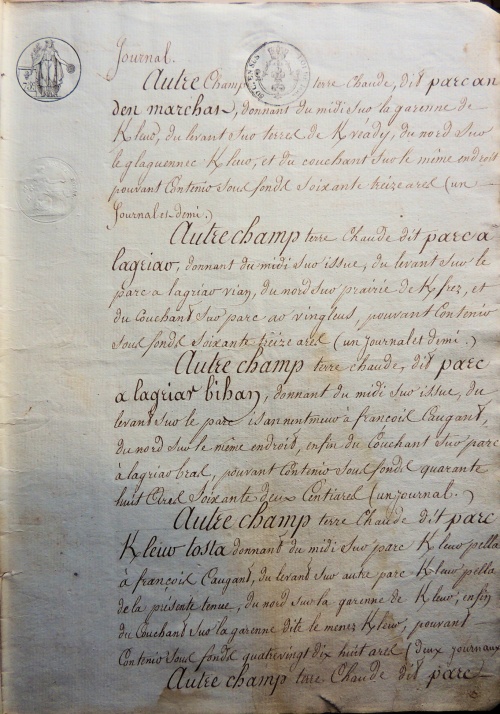 Journal.
Autre Champ terre Chaude, dit parc an
den marchar, donnant du midi sur la garenne de
Kleur, du levant sur terres de Kveady, du nord sur
le glaguennec Kleur, et du couchant sur le même endroit
pouvant Contenir sous fonds soixante treize ares (un
Journal et demi.)
Autre champ terre Chaude dit parc a
lagriar, donnant du midi sur issue, du levant sur le
parc a lagriar vian, du nord sur prairie de Kfrez, et
du Couchant sur parc ar vingleus, pouvant Contenir
sous fonds soixante treize ares (un journal et demi.)
Autre champ terre chaude, dit parc
a lagriar bihan, donnant du midi sur issue, du
levant sur le parc à françois Caugant,
du nord sur le même endroit, enfin du Couchant sur parc
à lagriar bras, pouvant Contenir sous fonds quarante
huit ares soixante deux Centiares (un journal.)
Autre champ terre Chaude dit parc
Kleur tosta donnant du midi sur parc Kleur pella
à françois Caugant, du levant sur autre parc Kleur pella
de la présente tenue, du nord sur la garenne de Kleur, enfin
du Couchant sur la garenne dite le menez Kleur, pouvant
Contenir sous fonds quatre vingt dix huit ares (deux journaux
Autre champ terre Chaude dit parc